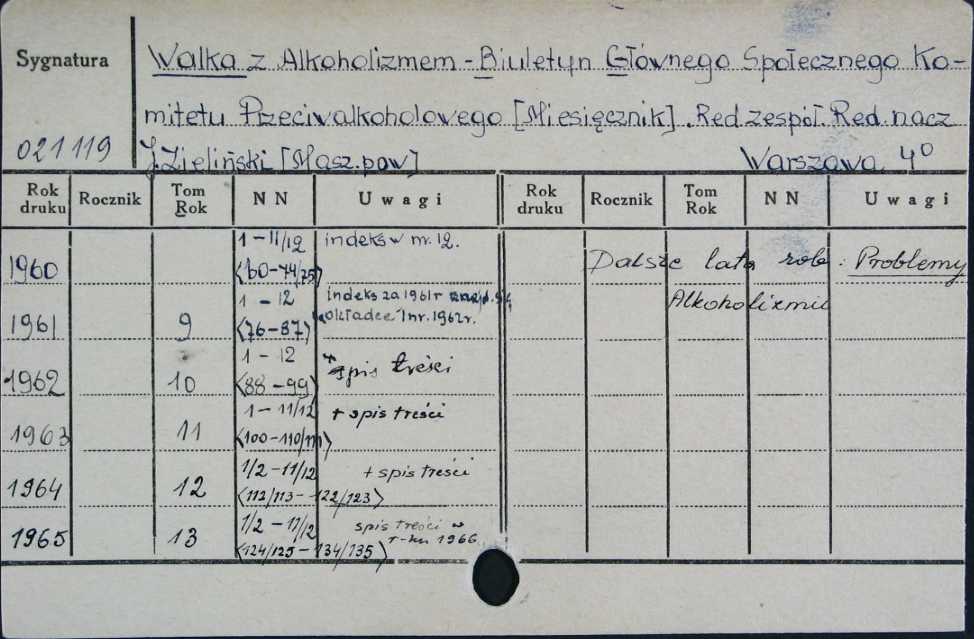 Sygnatura
Walka z Alkoholizmem - Biuletyn Głównego Społecznego Ko-
mitetu Przeciwalkoholowego [Miesięcznik]. Red. zespół. Red. nacz
021119 J. Zieliński [Masz. pow] Warszawa 4°
Rok druku Rocznik Tom Rok NN Uwagi Rok druku Rocznik Tom Rok NN Uwagi
1960 1-11/12 indeks w nr. 12.
<60-74/75>
Dalsze lata rob: Problemy
Alkoholizmu
1961 9 1-12 indeks za 1961 r
<76-87> okładce 1 nr. 1962 r.
1962 10 1-12 + spis treści
<88-99>
1963 11 1-11/12 + spis treści
<100-110/111>
1964 12 1/2-11/12 + spis treści
<112/113-122/123>
1965 13 1/2-11/12 spis treści w
<124/125-134/135> r-ku 1966